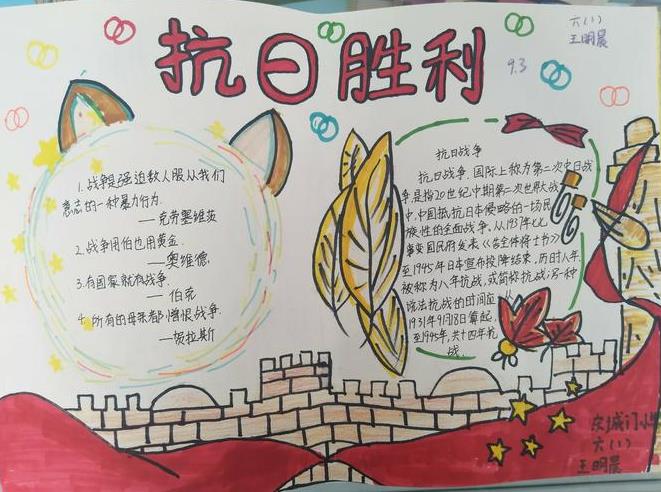 抗日胜利
六(1)
王明晨
9.3
1.战争是强迫敌人服从我们
意志的一种暴力行为.
——克劳塞维茨
2.战争用伯也用黄金.
——奥维德
3.有国家就有战争.
——伯克
4.所有的母亲都憎恨战争.
——贺拉斯
抗日战争
抗日战争,国际上称为第二次中日战
争,是指20世纪中期第二次世界大战
中,中国抵抗日本侵略的一场民
族性的全面战争,从1937年七七
事变国民府发表《告全体将士书》
至1945年日本宣布投降结束,历时八年
被称为八年抗战,或简称抗战;另一种
说法抗战的时间应从
1931年9月18日算起,
至1945年,共十四年抗
战.
城门小学
六(1)
王明晨